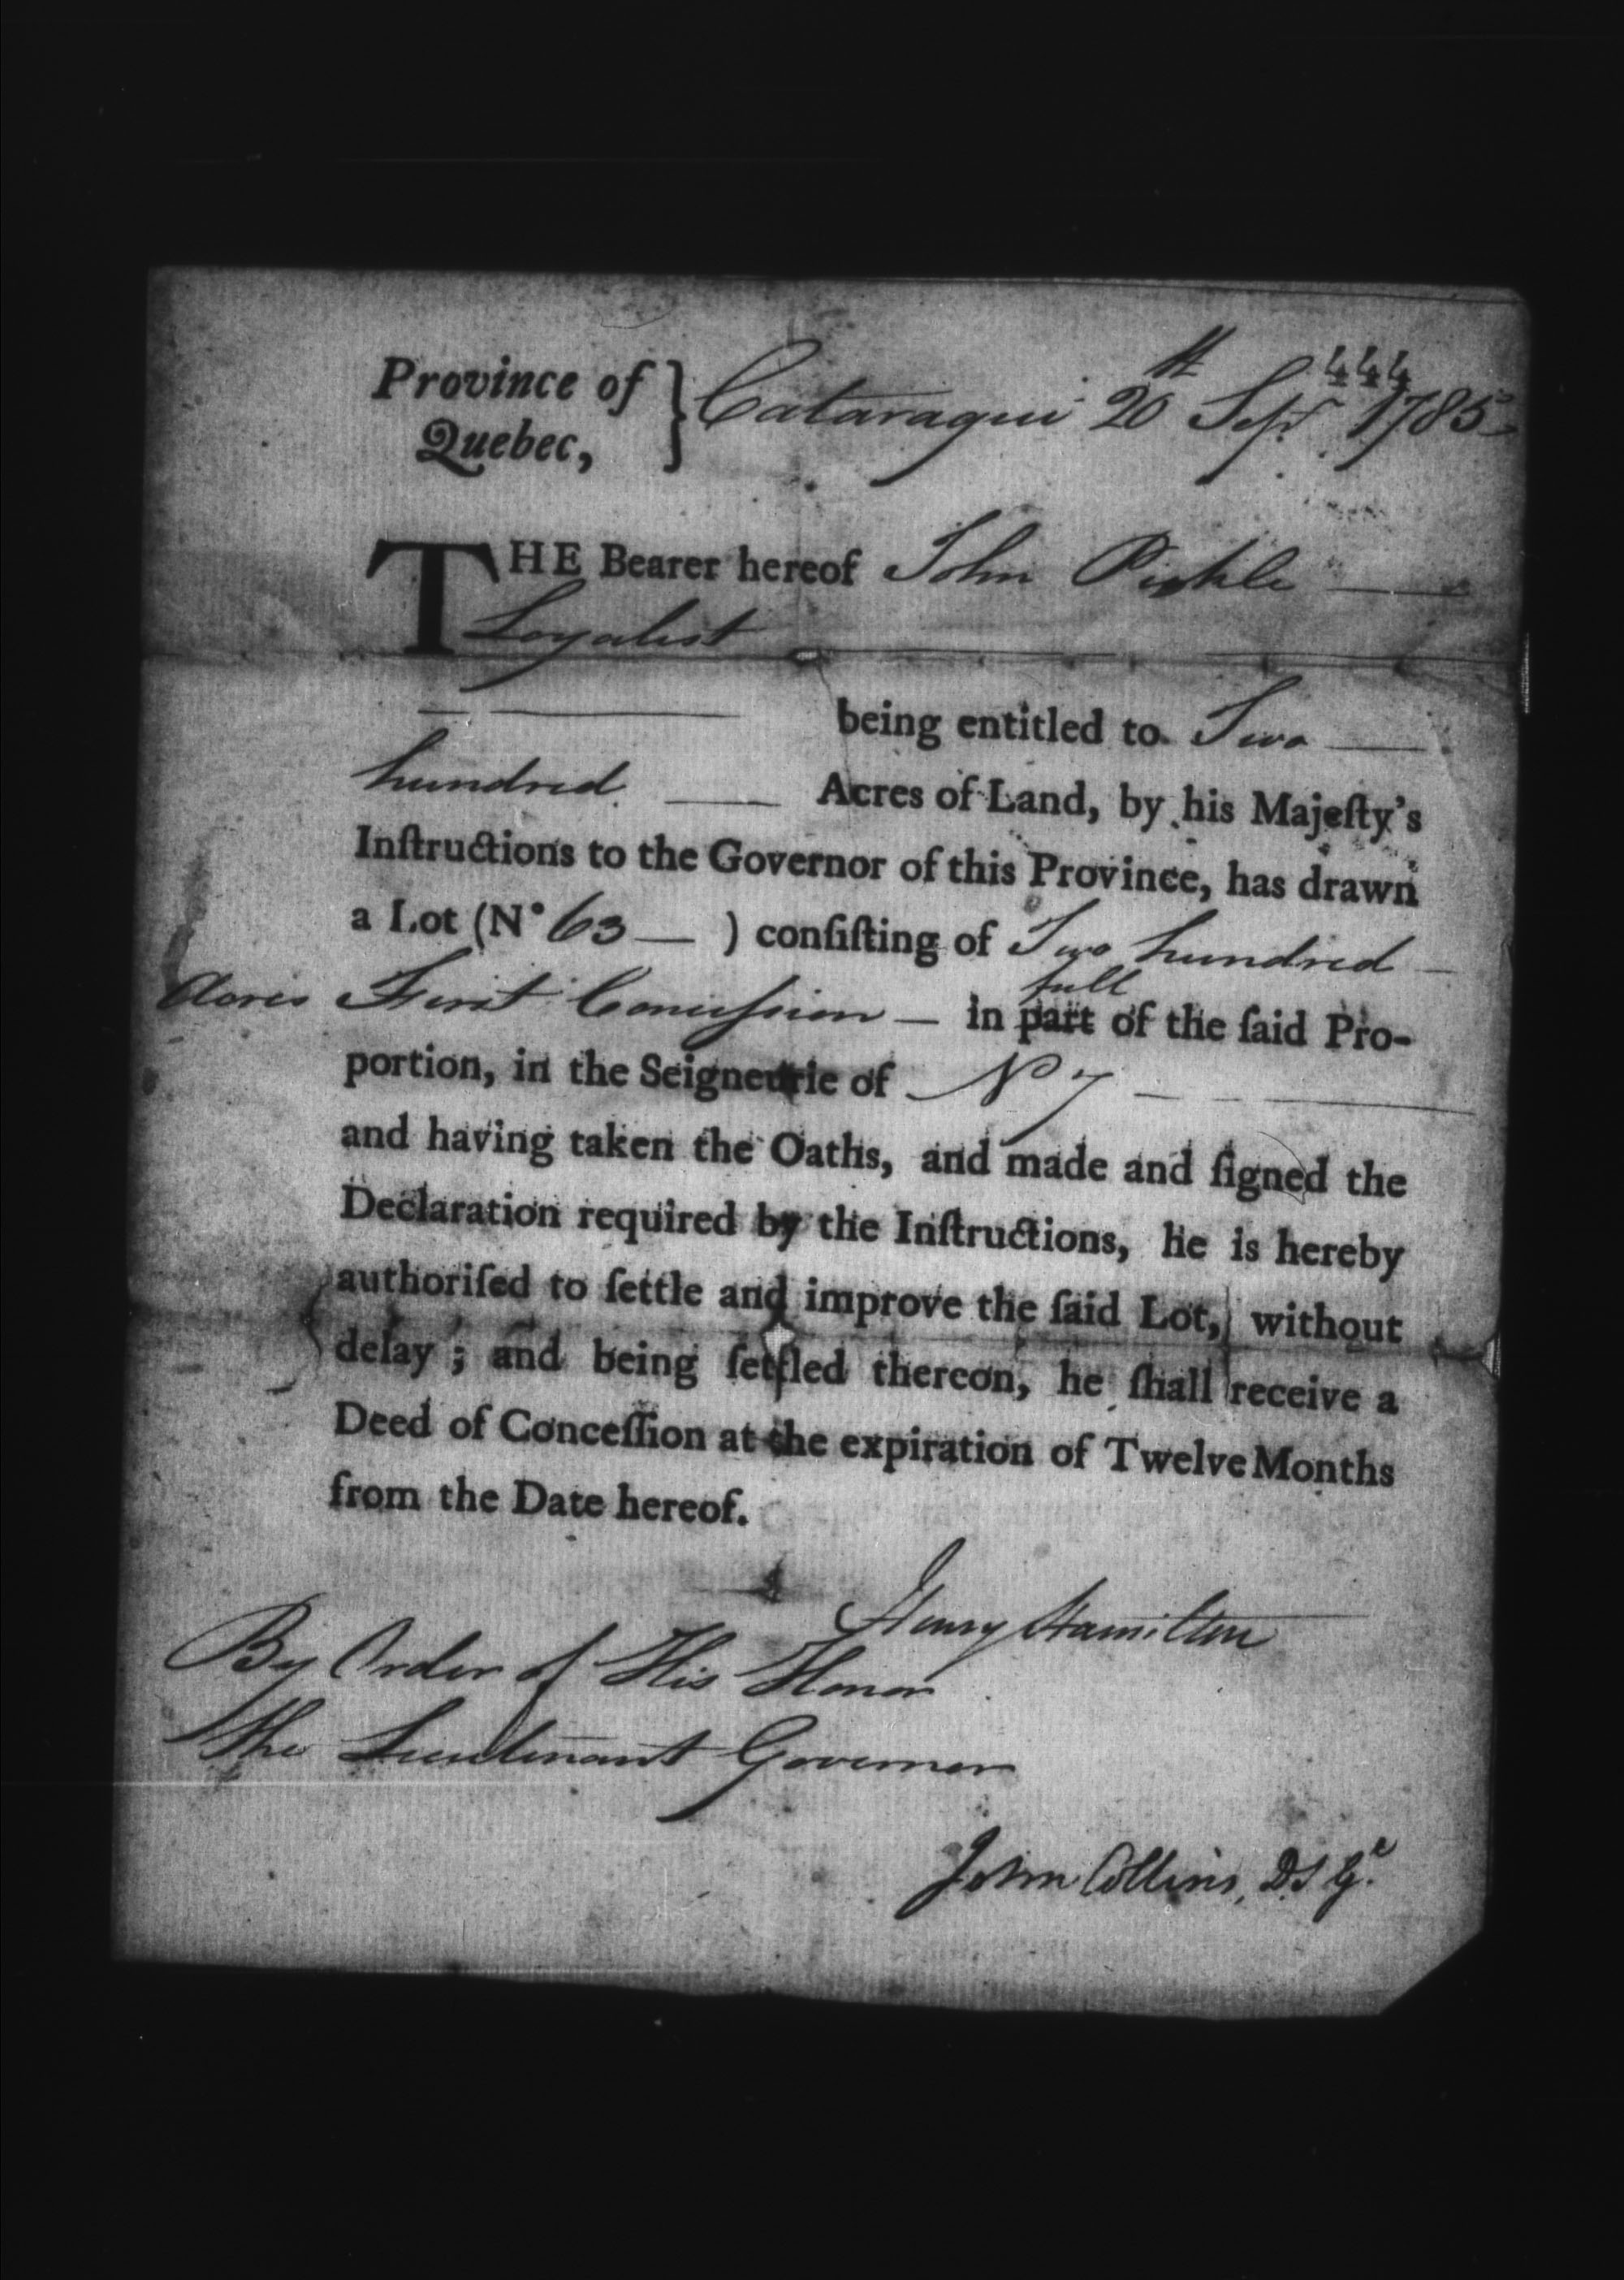 444
Province of } Cataraqui 20th Sepr 1785
Quebec,
THE Bearer hereof John Pickle
Loyalist
being entitled to Two
hundred Acres of Land, by his Majeſty's
Inſtructions to the Governor of this Province, has drawn
a Lot (N° 63 — ) conſiſting of Two hundred
full
Acres First Conceſsion — in part of the ſaid Pro-
portion, in the Seigneurie of N° 7
and having taken the Oaths, and made and ſigned the
Declaration required by the Inſtructions, he is hereby
authoriſed to ſettle and improve the ſaid Lot, without
delay ; and being ſettled thereon, he ſhall receive a
Deed of Conceſſion at the expiration of Twelve Months
from the Date hereof.
Henry Hamilton
By Order of His Honor
the Lieutenant Governor
John Collins, D S Gl